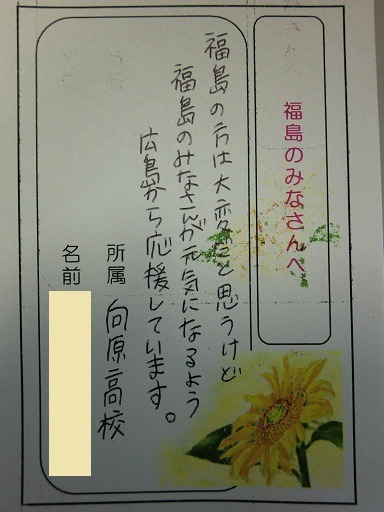 福島のみなさんへ
福島の方は大変だと思うけど
福島のみなさんが元気になるよう
広島から応援しています。
所属 向原高校
名前